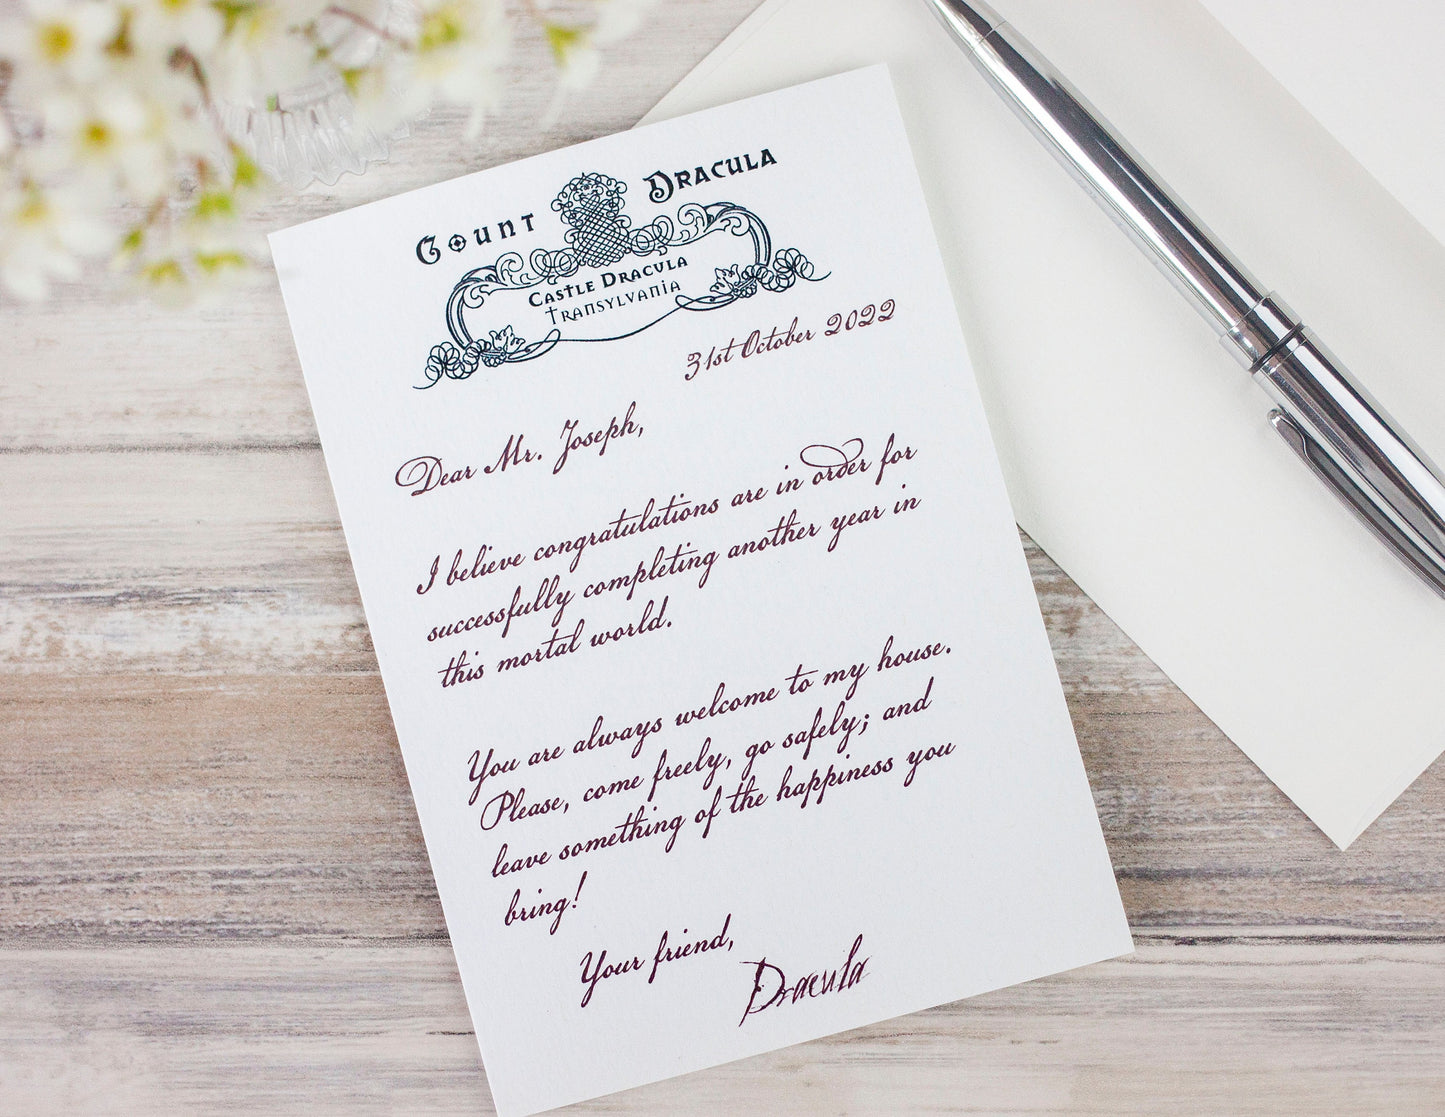 Count Dracula
Castle Dracula
Transylvania
31st October 2022
Dear Mr. Joseph,
I believe congratulations are in order for
successfully completing another year in
this mortal world.
You are always welcome to my house.
Please, come freely, go safely; and
leave something of the happiness you
bring!
Your friend,
Dracula